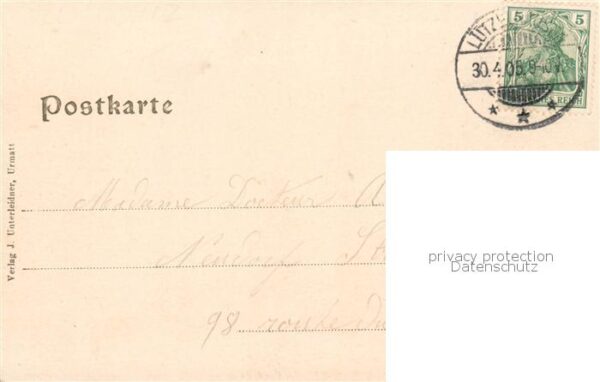 5 5
LÜTZ
30.4.05. 8-9 V.
Postkarte
Verlag J. Unterleidner, Urmatt
Madame Docteur A
Neudorf St
98 route du
privacy protection
Datenschutz